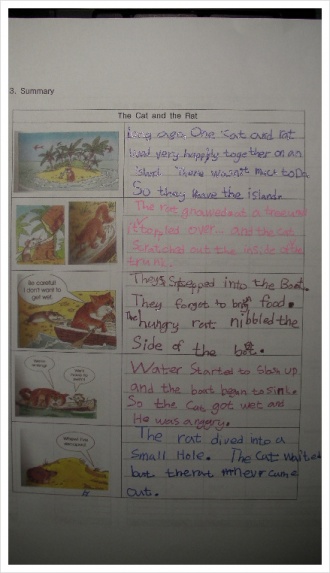 3. Summary
The Cat and the Rat
Long ago. One cat and rat
lived very happily together on an
island. There wasn't much to do.
So they leave the island.
The rat gnawed out a tree until
it toppled over.. and the cat
Scratched out the inside of the
trunk.
Be careful!
I don't want to
get wet.
They Stepped into the Boat.
They forgot to bring food.
The hungry rat nibbled the
Side of the boat.
Water Started to up
and the boat began to sink.
So the Cat got wet and
He was angry.
The rat dived into a
Small Hole. The Cat waited
but the rat never came
out.